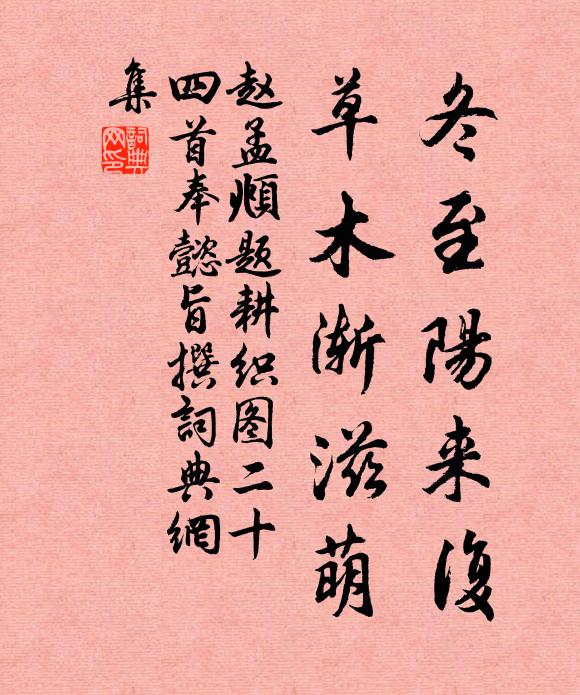 冬至陽来復
草木渐滋萌
赵孟頫题耕织图二十
四首奉懿旨撰詞典網
集
詞典
网印